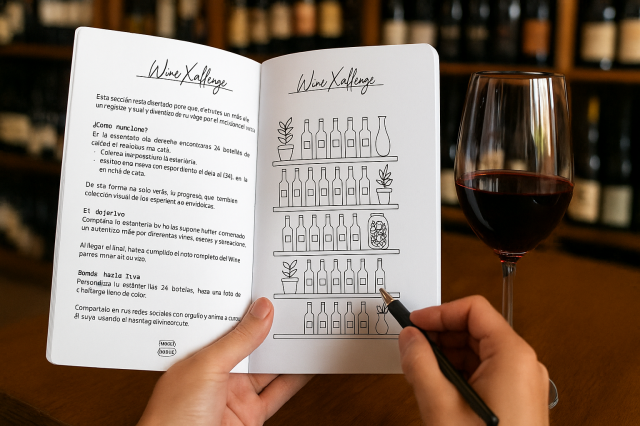 Wine Xallenge
Esta sección resta disertado pore que, d'etrutes un más
un registze y sual y diventizo de ru vãge por el
¿Como nuncione?
En la essentato ola dereehe encontraras 24 botellas de
calced el reaioius ma catà.
· Colerea
· essitoo ena nseva con espor diiento el deia al (34), en la
en nché de cata.
De sta forma na solo verás, lu progreso, que tambien
colección visual de los esperient ao envidoicas.
El dojerlvo
Complàna lo estanteria bv ho las supone hufter comenado
un autentizo mãe por direrentas vines, eseries y
Al llegar el linal, hatea cumplido el roto rompleto del Wine
parres mner ait ou vizo.
Bomda hazla Itva
Personaliza lu estánter llas 24 botelas, haza una foto de
c haltarga lleno de color.
Compartalo en rus redes sociales con orgulio y anima a
&l suya usando el nasntag
Wine Xallenge